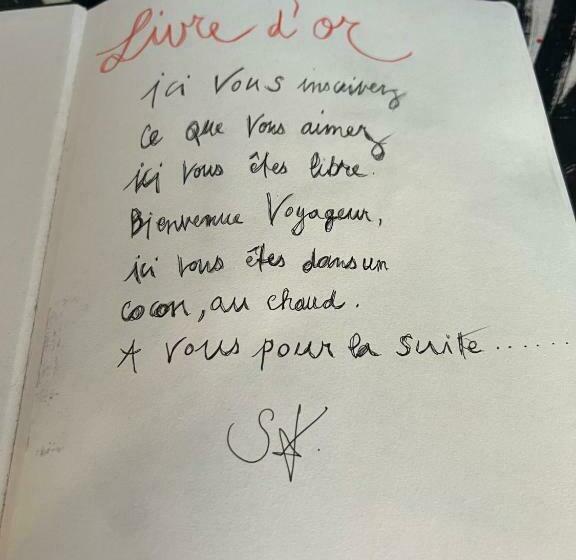 Livre d'or
ici vous inscrivez
ce que vous aimez
ici vous êtes libre.
Bienvenue Voyageur,
ici vous êtes dans un
cocon, au chaud.
A vous pour la suite......